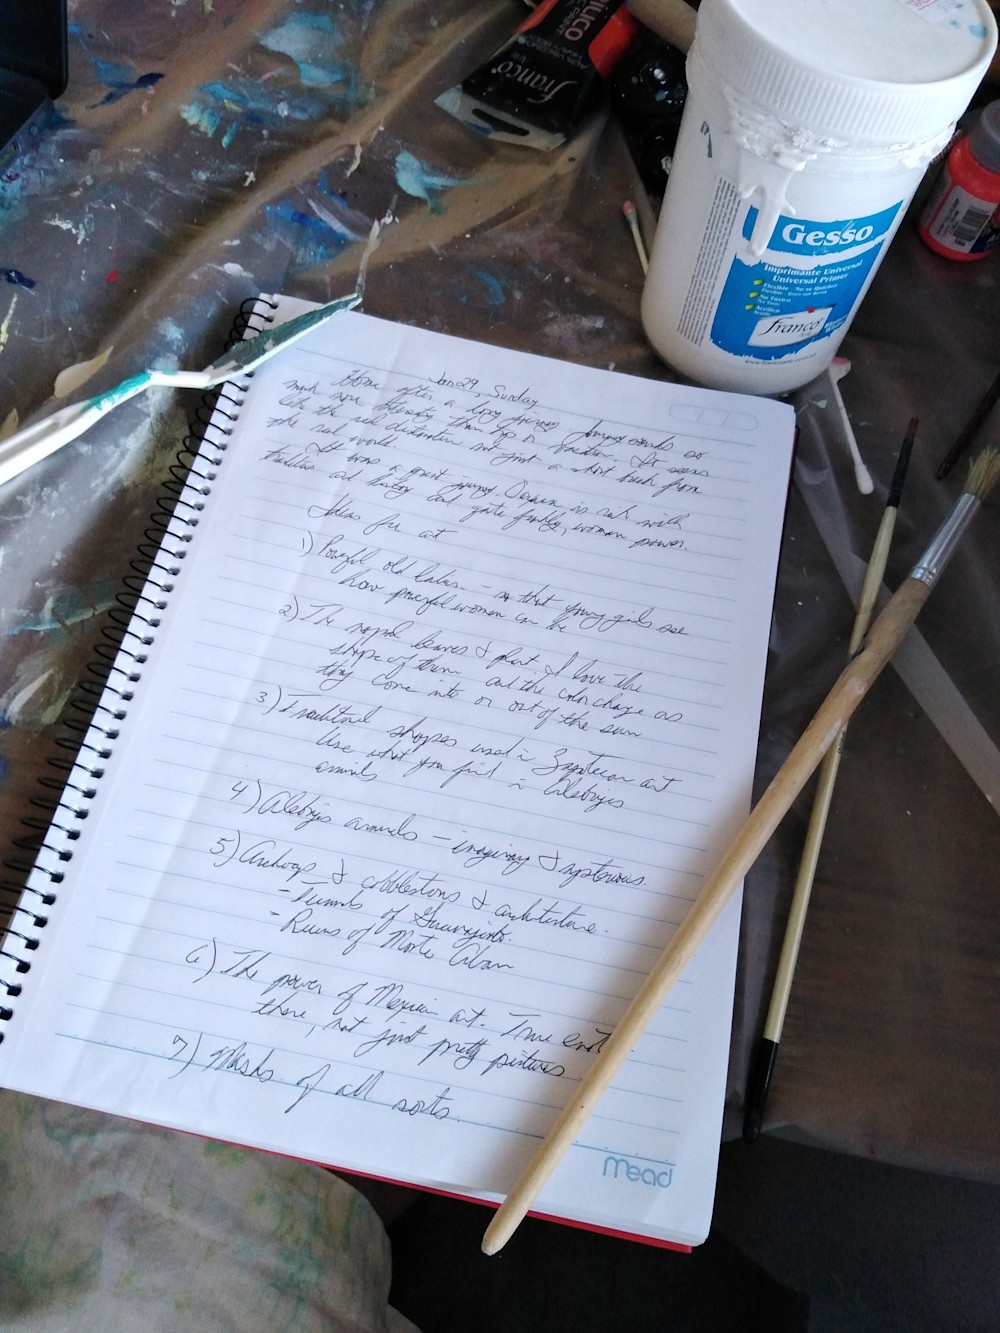 Franco
Gesso
Imprimante Universal
Universal Primer
Flexible - No se Quiebra
No Tóxico
Acrílico
franco
Jan 29, Sunday
Home after a long journey. Journey sounds so
much more than trip or vacation. It seems
like the real destination not just a short break from
the real world.
It was a great journey. Oaxaca is rich with
tradition and history and quite frankly, woman power.
Ideas for art
1) Powerful old ladies - so that young girls see
how powerful women can be
2) The nopal leaves & plant. I love the
shape of them and the color change as
they come into or out of the sun
3) Traditional shapes used in Zapotecan art
Use what you find in Alebrijes
animals
4) Alebrijes animals - imaginary & mysterious.
5) Archways & cobblestones & architecture.
- Tunnels of Guanajuato.
- Ruins of Monte Alban
6) The power of Mexican art. True
there, not just pretty pictures
7) Masks of all sorts.
Mead